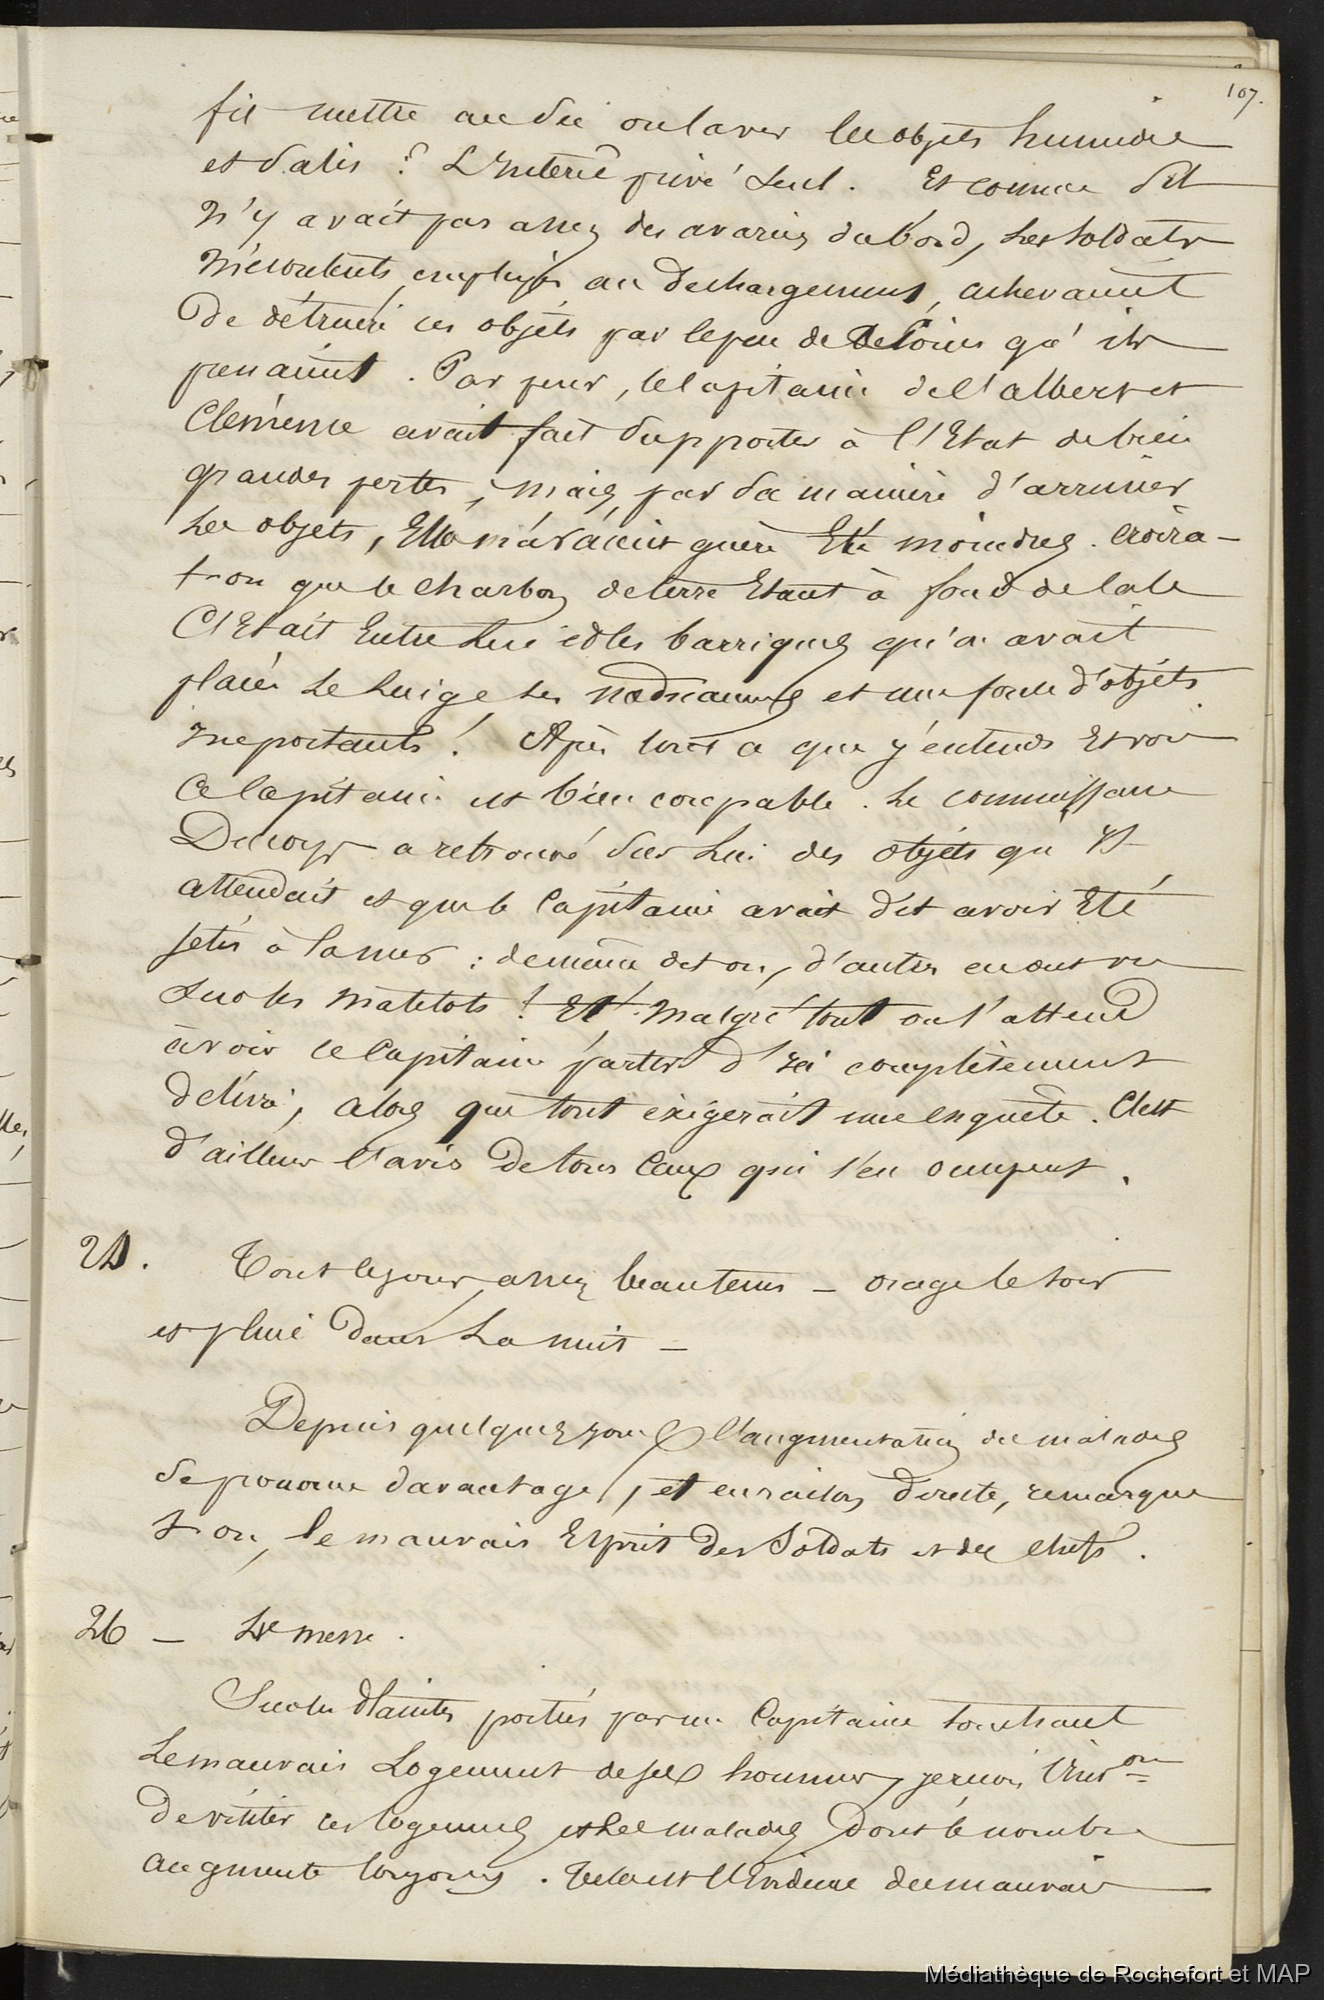 107.
fit mettre au sec ou laver les objets humides
et salis ? L'Intérêt privé seul. Et comme s'il
n'y avait pas assez des avaries du bord, les soldats
mécontents, employés au dechargement, achevaient
de détruire ces objets par le peu de soins qu'ils
prenaient. Par peur, le Capitaine de l'albert et
Clémence avait fait supporter à l'Etat de bien
grandes pertes ; mais, par sa manière d'arrimer
les objets, Elles n'avaient guère Eté moindres. Croira-
t-on que le charbon de terre Etant à fond de cale
C'Etait Entre lui et les barriques qu'on avait
placés le linge les médicaments et une foule d'objets
importants ! Après tout ce que j'entends Et vois
ce Capitaine est bien coupable. Le commissaire
a retrouvé sur lui des objets qu'il
attendait et que le Capitaine avait dit avoir Eté
jetés à la mer : de même dit on, d'autres en ont vu
sur les matelots ! Et malgré tout on s'attend
à voir ce Capitaine partir d'ici complètement
delivré, alors que tout éxigerait une enquête. C'est
d'ailleurs l'avis de tous Ceux qui s'en occupent.
24. Tout le jour, assez beau tems – orage le soir
et pluie dans la nuit –
Depuis quelques jours l'augmentation des malades
se prononce davantage, et en raison directe, remarque
t-on, le mauvais Esprit des Soldats et des chefs.
26 – messe.
Sur les plaintes portées par un Capitaine touchant
le mauvais Logement de ses hommes, je reçois l'inv.on
de visiter ces logements et les malades dont le nombre
augmente toujours. Telle est l'Evidence du mauvais
Médiathèque de Rochefort et MAP